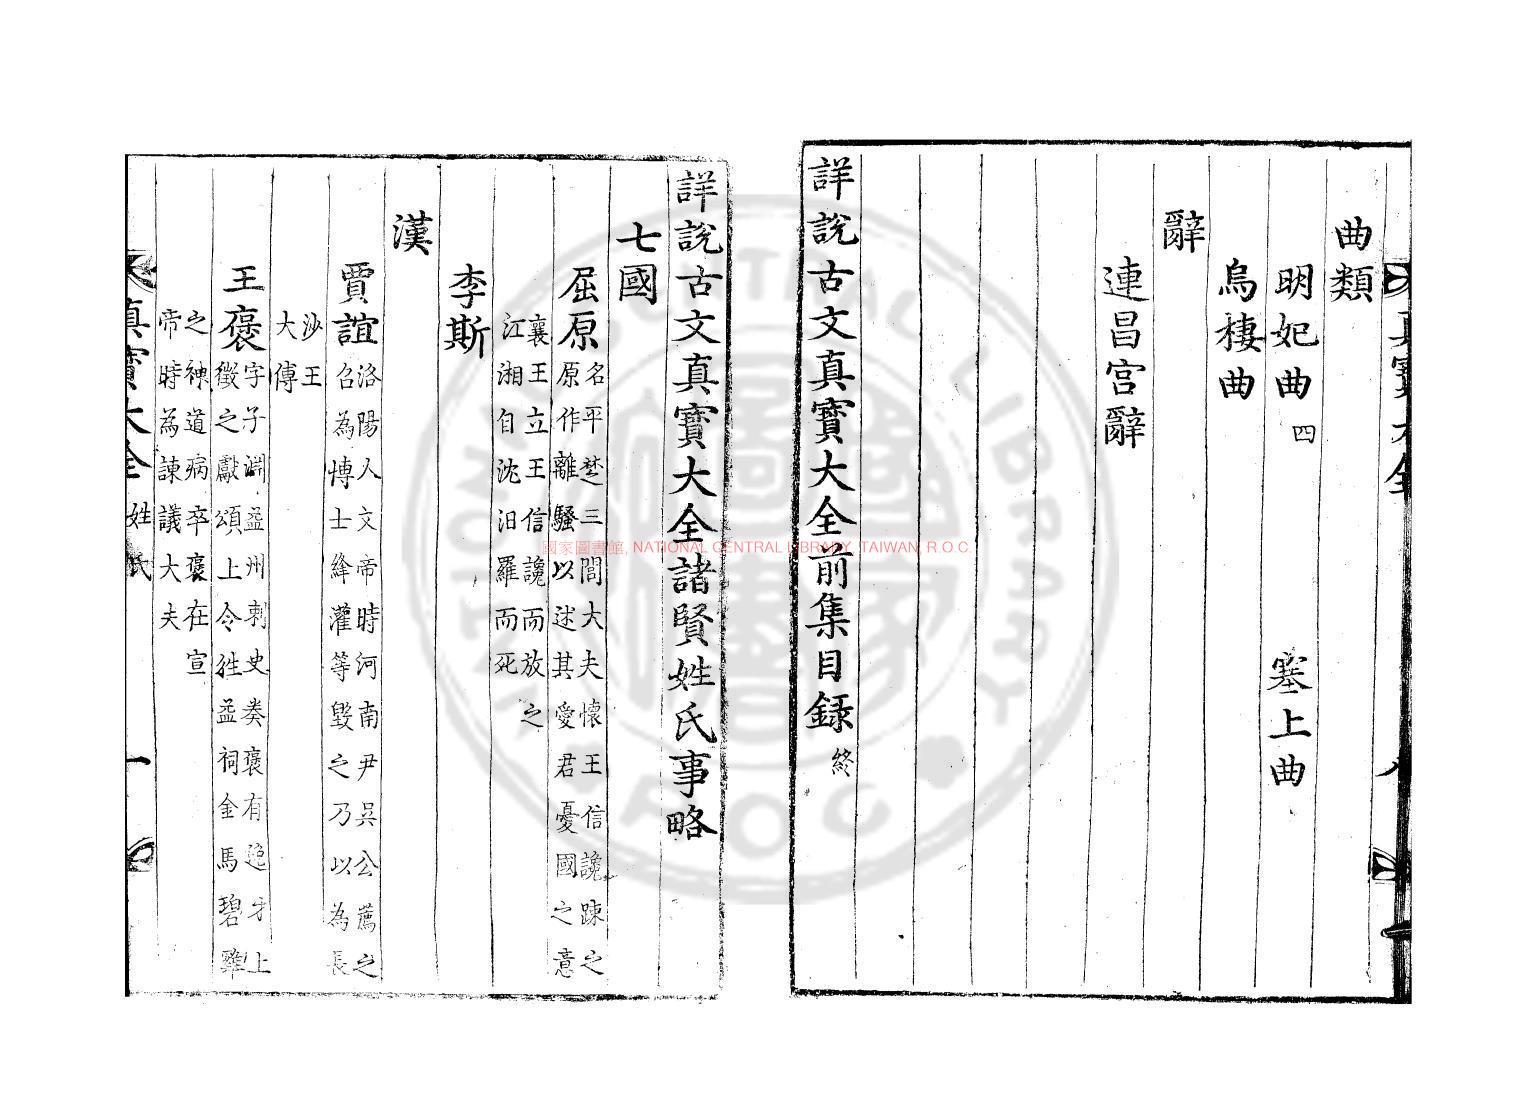 曲類
明妃曲 四 塞上曲
烏棲曲
辭
連昌宫辭
詳説古文真寳大全前集目録 終
真寳大全
八
詳説古文真寳大全諸賢姓氏事略
七國
屈原 名平楚三閭大夫懷王信讒踈之
原作離騷以述其愛君憂國之意
襄王立王信讒而放之
江湘自沈汨羅而死
李斯
漢
賈誼 洛陽人文帝時河南尹吳公薦之
召為博士絳灌等毀之乃以為長
沙王
太傅
王褒 字子淵益州刺史奏褒有逸才上
徵之獻頌上令徃益祠金馬碧雞
之神道病卒褒在宣
帝時為諫議大夫
真寳大全 姓氏 一
國家圖書館, NATIONAL CENTRAL LIBRARY, TAIWAN, R.O.C.
NATIONAL CENTRAL LIBRARY
R.O.C.